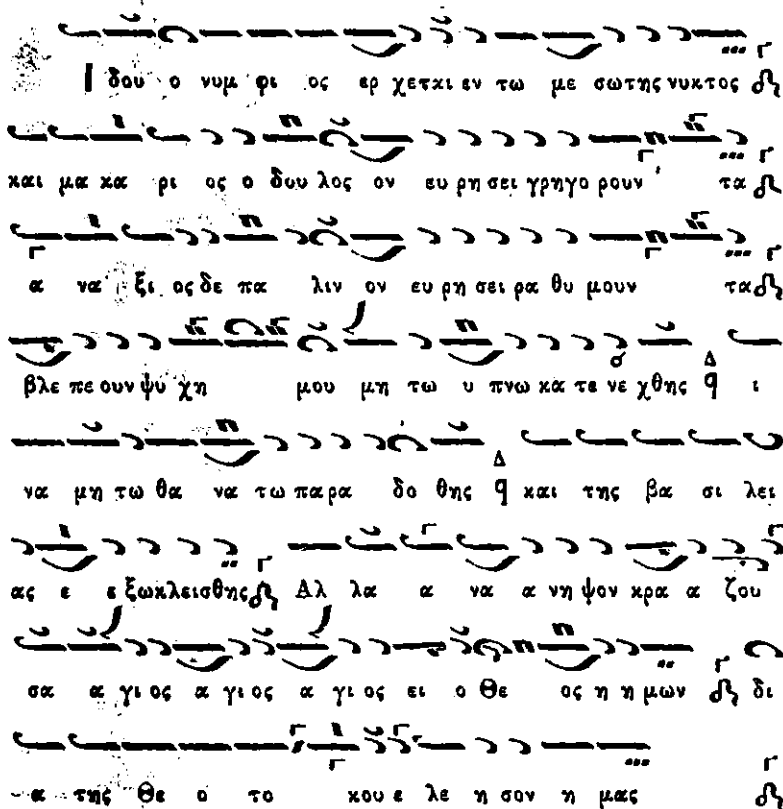 Ιδου ο νυμ φι ος ερ χεται εν τω με σωτης νυκτος
και μα κα ρι ος ο δου λος ον ευ ρη σει γρηγο ρουν τα
α να ξι ος δε πα λιν ον ευ ρη σει ρα θυ μουν τα
βλε πε ουν ψυ χη μου μη τω υ πνω κα τε νε χθης Δ ι
να μη τω θα να τω παρα δο θης Δ και της βα σι λει
ας ε ε ξωκλεισθης Αλ λα α να α νη ψον κρα α ζου
σα α γι ος α γι ος α γι ος ει ο Θε ος η η μων δι
α της Θε ο το κου ε λε η σον η μας